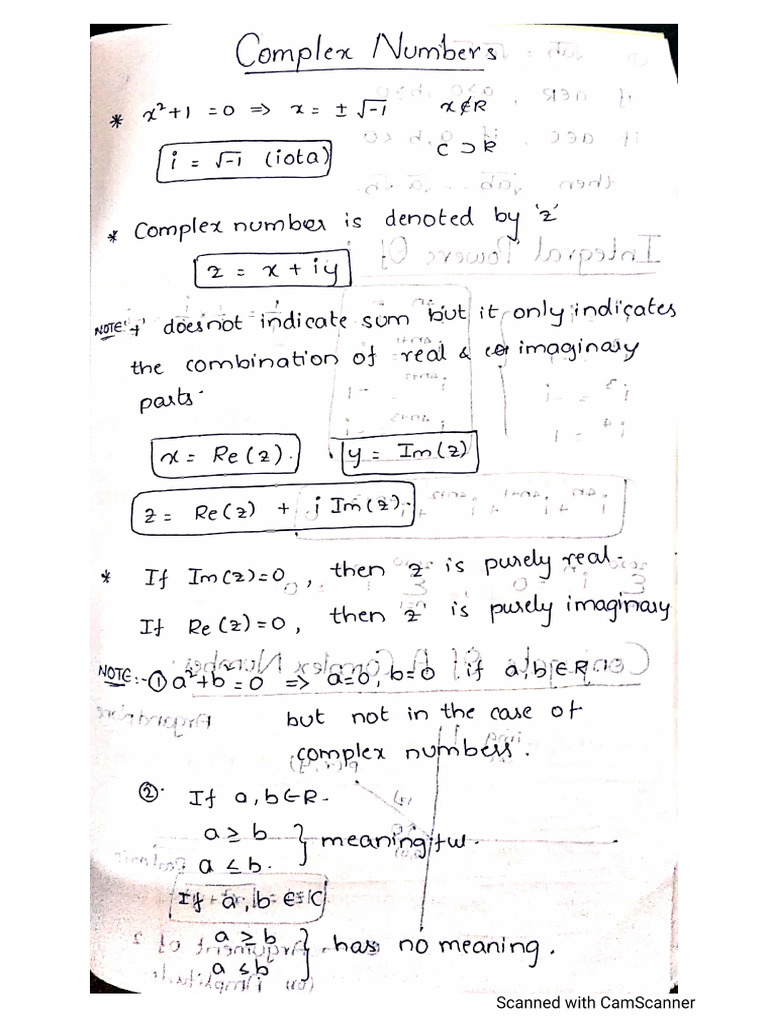 Complex Numbers
* x²+1 = 0 ⇒ x = ± √-1 x∉R
i = √-1 (iota) C ⊃ R
* Complex number is denoted by 'z'
z = x + iy
NOTE: '+' does not indicate sum but it only indicates
the combination of real & imaginary
parts.
x = Re(z). y = Im(z)
z = Re(z) + i Im(z).
* If Im(z)=0, then z is purely real.
If Re(z)=0, then z is purely imaginary
NOTE:- ① a²+b²=0 ⇒ a=0, b=0 if a,b∈R
but not in the case of
complex numbers.
②. If a,b∈R.
a ≥ b
a ≤ b. } meaningful.
If a, b ∈ C
a ≥ b
a ≤ b } has no meaning.
Scanned with CamScanner